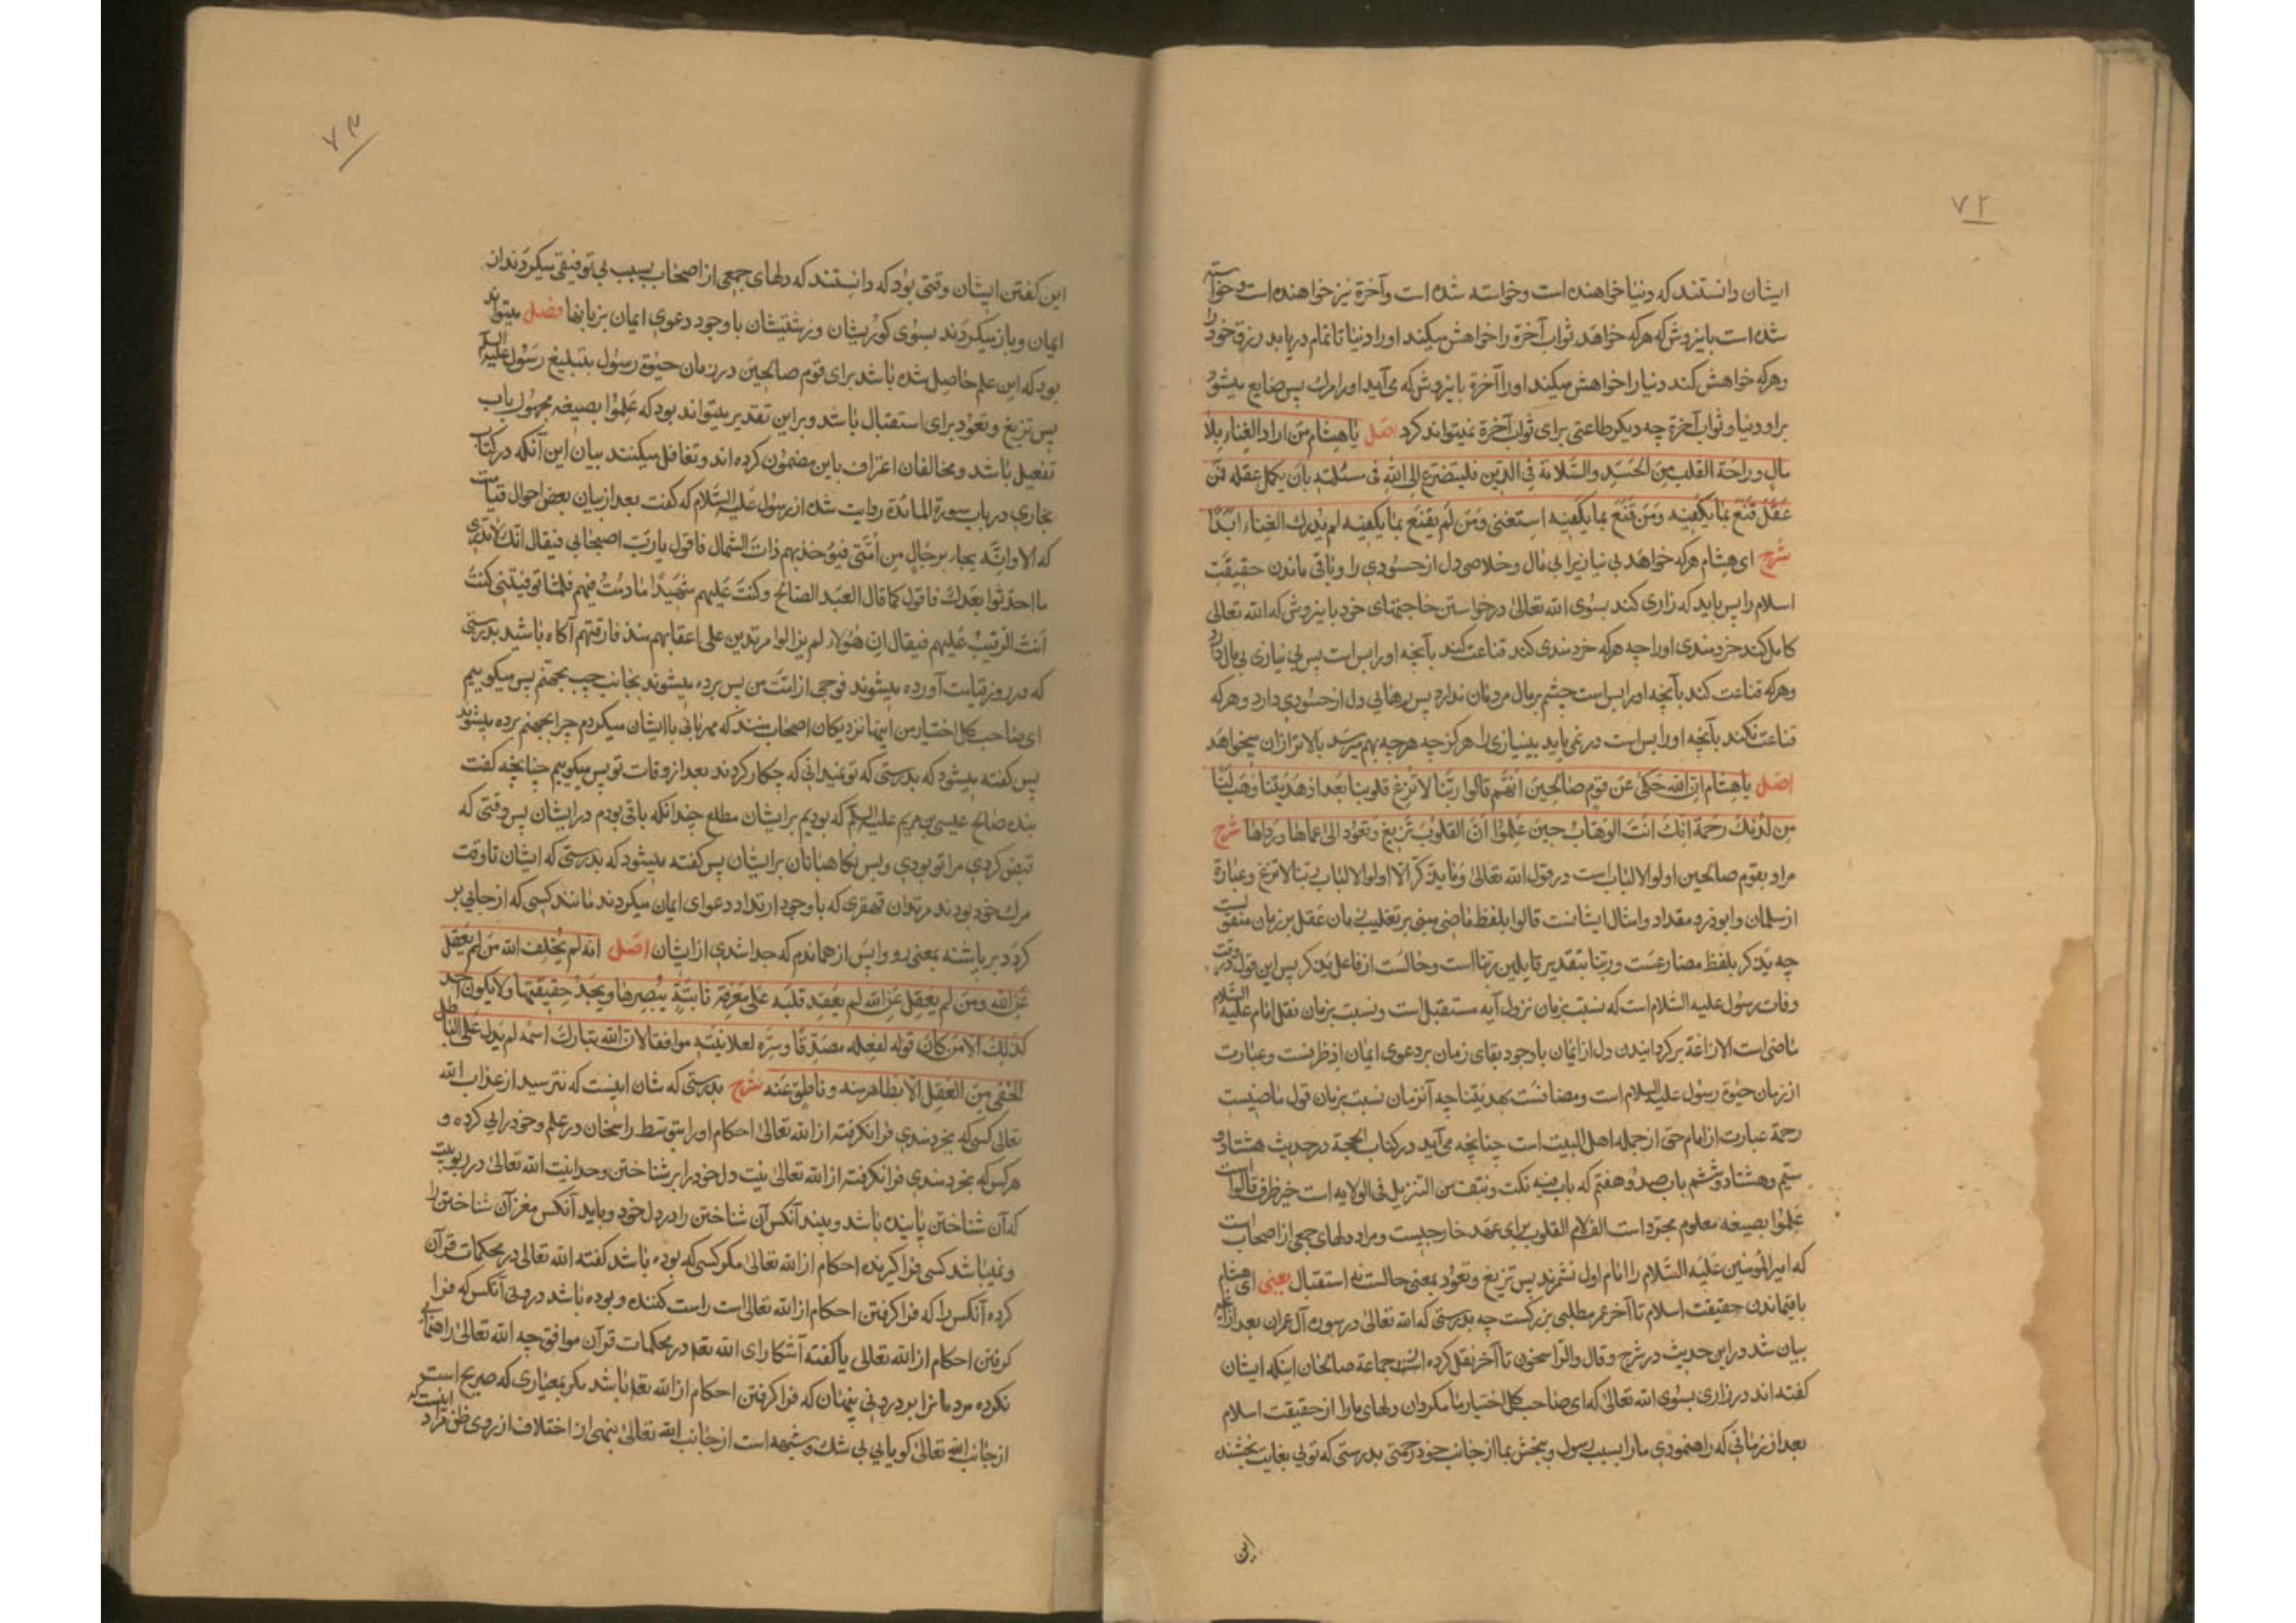 ٧٢
ایشان دانستند که دنیا خواهنده است وخواسته شده است وآخرة نیز خواهنده است وخواسته
شده است باینروش که هرکه خواهد ثواب آخرة را خواهش میکند اورا دنیا تا تمام دریابد رزق خود را
وهرکه خواهش کند دنیا را خواهش میکند اورا آخرة باینروش که می آید اورا مرك پس ضایع میشود
براو دنیا و ثواب آخرة چه دیکر طاعتی برای ثواب آخرة نمیتواند کرد اصل یا هشام من اراد الغناء بلا
مال وراحة القلب من الحسد والسلامة فی الدین فلیتضرع الی الله فی مسئلته بان یکمل عقله فمن
عقل قنع بما یکفیه ومن قنع بما یکفیه استغنی ومن لم یقنع بما یکفیه لم یدرك الغناء ابدًا
شرح ای هشام هرکه خواهد بی نیازیرا بی مال وخلاصی دل از حسودی را وباقی ماندن حقیقت
اسلام را پس باید که زاری کند بسوی الله تعالی درخواستن حاجتهای خود باینروش که الله تعالی
کامل کند خردمندی اورا چه هرکه خردمندی کند قناعت کند بآنچه اورا بس است پس بی نیازی بی مال دارد
وهرکه قناعت کند بآنچه اورا بس است چشم برمال مردمان ندارد پس رهایی دل از حسودی دارد وهرکه
قناعت نکند بآنچه اورا بس است درنمی یابد بینیازی را هرکز چه هرچه بهم میرسد بالاتر از آن میخواهد
اصل یا هشام ان الله حکی عن قوم صالحین انهم قالوا ربنا لا تزغ قلوبنا بعد اذ هدیتنا وهب لنا
من لدنك رحمة انك انت الوهاب حین علموا ان القلوب تزیغ وتعود الی عماها ورداها شرح
مراد بقوم صالحین اولوا الالباب است در قول الله تعالی وما یذکر الا اولوا الالباب ربنا لا تزغ وعبارة
از سلمان وابوذر و مقداد وامثال ایشانست قالوا بلفظ ماضی مبنی بر تغلیب زمان عقل بر زمان منقولست
چه یذکر بلفظ مضارعست وربنا بتقدیر قایلین ربنا است وحالست از فاعل یذکر پس این قول در وقت
وفات رسول علیه السلام است که نسبت بزمان نزول آیه مستقبل است ونسبت بزمان نقل امام علیه السلام
ماضی است الازاغة برکردانیدن دل از ایمان باوجود بقای زمان بر دعوی ایمان اذ ظرفست وعبارت
از زمان حیوة رسول علیه السلام است ومضافست بهدیتنا چه آنزمان نسبت بزمان قول ماضیست
رحمة عبارت از امام حق از جمله اهل البیت است چنانچه می آید در کتاب الحجة درحدیث هشتاد و
سیّم وهشتاد وششم باب صد وهفتم که باب فیه نکت ونتف من التنزیل فی الولایه است حین ظرف قالوا است
علموا بصیغه معلوم مجرد است الف لام القلوب برای عهد خارجیست ومراد دلهای جمعی از اصحاب است
که امیر المومنین علیه السلام را امام اول نشمرند پس تزیغ وتعود بمعنی حالست نه استقبال یعنی ای هشام
باقیماندن حقیقت اسلام تا آخر عمر مطلبی بزرکست چه بدرستی که الله تعالی درسوره آل عمران بعد از آنچه
بیان شد دراین حدیث درشرح وقال والراسخون تا آخر نقل کرده است از جماعة صالحان اینکه ایشان
کفته اند درزاری بسوی الله تعالی که ای صاحب کل اختیار ما مکردان دلهای مارا از حقیقت اسلام
بعد از زمانی که راهنمودی مارا بسبب رسول وببخش بما از جانب خود رحمتی بدرستی که تویی بغایت بخشنده
این
٧٣
این کفتن ایشان وقتی بود که دانستند که دلهای جمعی از اصحاب بسبب بی توفیقی میکردند از
ایمان وباز میکردند بسوی کوریشان وزشتیشان باوجود دعوی ایمان بزبانها فصل میتواند
بود که این علم حاصل شده باشد برای قوم صالحین درزمان حیوة رسول بتبلیغ رسول علیه السلام
پس تزیغ وتعود برای استقبال باشد وبراین تقدیر میتواند بود که علموا بصیغه مجهول باب
تفعیل باشد ومخالفان اعتراف باین مضمون کرده اند وتغافل میکنند بیان این آنکه درکتاب
بخاری درباب سورة المائدة روایت شده از رسول علیه السلام که کفت بعد از بیان بعض احوال قیامت
که الا وانه یجاء برجال من امتی فیؤخذ بهم ذات الشمال فاقول یا رب اصیحابی فیقال انك لا تدری
ما احدثوا بعدك فاقول کما قال العبد الصالح وکنت علیهم شهیدًا ما دمت فیهم فلما توفیتنی کنت
انت الرقیب علیهم فیقال ان هؤلاء لم یزالوا مرتدین علی اعقابهم منذ فارقتهم آکاه باشید بدرستی
که درروز قیامت آورده میشوند فوجی از امت من پس برده میشوند بجانب چپ بجهنم پس میکویم
ای صاحب کل اختیار من اینها نزدیکان اصحاب منند که مهربانی باایشان میکردم چرا بجهنم برده میشوند
پس کفته میشود که بدرستی که تو نمیدانی که چکار کردند بعد از وفات تو پس میکویم چنانچه کفت
بنده صالح عیسی بن مریم علیه السلم که بودیم برایشان مطلع چندانکه باقی بودم درایشان پس وقتی که
قبض کردی مرا تو بودی وبس نکاهبانان برایشان پس کفته میشود که بدرستی که ایشان تا وقت
مرك خود بودند مرتدان قهقری که باوجود ارتداد دعوای ایمان میکردند مانند کسی که از جایی بر
کردد بر پاشنه بمعنی رو واپس از همان دم که جدا شدی از ایشان اصل انه لم یخف الله من لم یعقل
عن الله ومن لم یعقل عن الله لم یعقد قلبه علی معرفة ثابتة یبصرها ویجد حقیقتها ولا یکون احد
کذلك الا من کان قوله لفعله مصدقًا وسره لعلانیته موافقا لان الله تبارك اسمه لم یدل علی الباطن
الخفی من العقل الا بظاهر منه وناطق عنه شرح بدرستی که شان اینست که نترسید از عذاب الله
تعالی کسی که بخردمندی فرا نکرفته از الله تعالی احکام اورا بتوسط راسخان درعلم وخودرایی کرده و
هرکس که بخردمندی فرا نکرفته از الله تعالی نبست دل خود را بر شناختن وحدانیت الله تعالی درربوبیت
که آن شناختن پاینده باشد وبیند آنکس آن شناختن را دردل خود ویابد آنکس مغز آن شناختن را
ونمیباشد کسی فرا کیرنده احکام از الله تعالی مکر کسی که بوده باشد کفته الله تعالی درمحکمات قرآن
کرده آنکس را که فرا کرفتن احکام از الله تعالی است راست کننده وبوده باشد درونی آنکس که فرا
کرفتن احکام از الله تعالی باکفته آشکارای الله تعه درمحکمات قرآن موافق چه الله تعالی راهنمایی
نکرده مردمانرا بر درونی پنهان که فرا کرفتن احکام از الله تعه باشد مکر بمعیاری که صریح است
از جانب الله تعالی کویایی بی شك وشبهه است از جانب الله تعالی نهی از اختلاف از روی ظن